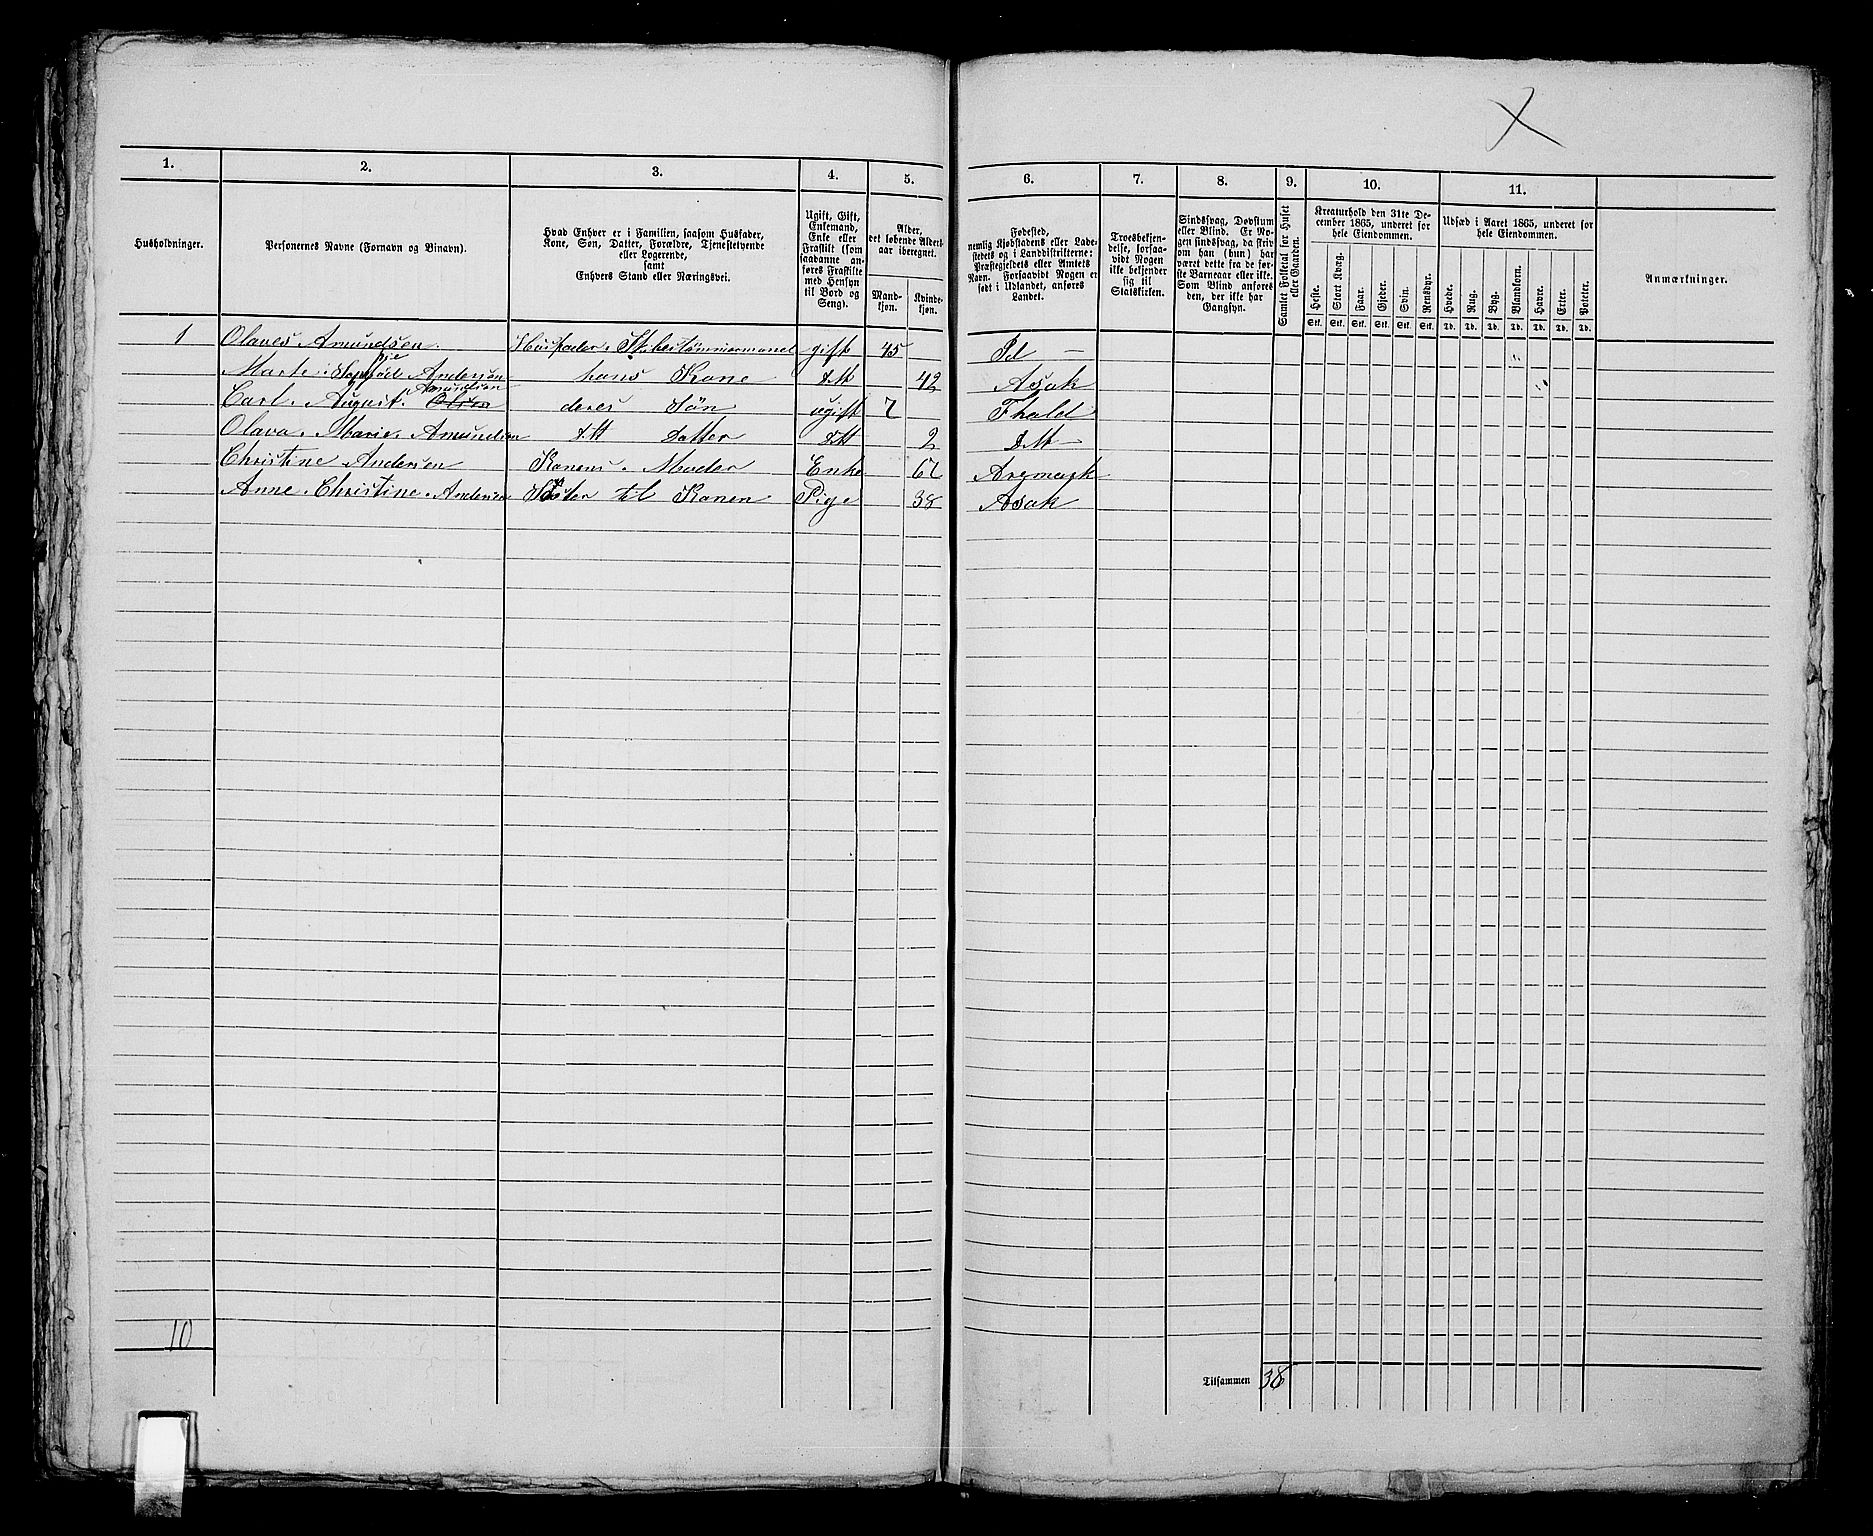 1. 2. 3. 4. 5. 6. 7. 8. 9. 10. 11.
Husholdninger.
Personernes Navne (Fornavn og Binavn).
Hvad Enhver er i Familien, saasom Husfader,
Kone, Søn, Datter, Forældre, Tjenestetyende
eller Logerende,
samt
Enhvers Stand eller Næringsvei.
Ugift, Gift,
Enkemand,
Enke eller
Fraskilt (som
saadanne an-
føres Fraskilte
med Hensyn
til Bord og
Seng).
Alder,
det løbende Alders-
aar iberegnet.
Mand-
kjøn.
Kvinde-
kjøn.
Fødested,
nemlig Kjøbstadens eller Lade-
stedets og i Landdistrikterne:
Præstegjeldets eller Amtets
Navn. Forsaavidt Nogen er
født i Udlandet, anføres
Landet.
Troesbekjen-
delse, forsaa-
vidt Nogen
ikke bekjender
sig til
Statskirken.
Sindssvag, Døvstum
eller Blind. Er No-
gen sindssvag, da skriv
om han (hun) har
været dette fra de før-
ste Barneaar eller ikke.
Som Blind anføres
den, der ikke har
Gangsyn.
Samlet Folketal for Huset
eller Gaarden.
Kreaturhold den 31te De-
cember 1865, underet for
hele Eiendommen.
Heste. Stort Kvæg. Faar. Gjeder. Svin. Rensdyr.
Stk. Stk. Stk. Stk. Stk. Stk.
Udsæd i Aaret 1865, underet for
hele Eiendommen.
Hvede. Rug. Byg. Blandkorn. Havre. Erter. Poteter.
Td. Td. Td. Td. Td. Td. Td.
Anmærkninger.
1 Olaves Amundsen Husfader. gift 45 Id
Marte Andersen hans Kone d.M 42 Asak
Carl August Olsen Amundsen deres Søn ugift 7 Fhald
Olava Marie Amundsen d.M Datter d.M 2 d.M
Christine Andersen Konens Moder Enke Aremark
Anne Christine Andersen Søster til Konen Pige 38 Asak
10
Tilsammen 38